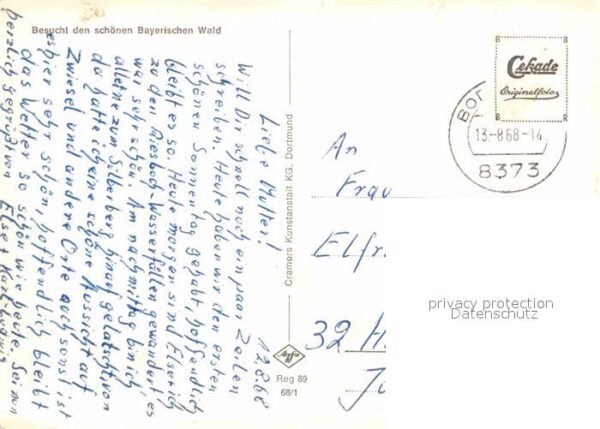 Besucht den schönen Bayerischen Wald
12.8.68
Liebe Mutter!
Will Dir schnell noch ein paar Zeilen
schreiben. Heute haben wir den ersten
schönen Sonnentag gehabt, hoffendlich
bleibt es so. Heute morgen sind Else u. ich
zu den Riesloch-Wasserfällen gewandert, es
war sehr schön. Am nachmittag bin ich
alleine zum Silberberg hinauf gelatscht von
da hatte ich eine schöne Aussicht auf
Zwiesel und andere Orte auch sonst ist
es hier sehr schön, hoffendlich bleibt
das Wetter so schön wie heute. Sei nun
herzlich gegrüßt von Else u. Karl-Ludwig
Cramers Kunstanstalt KG, Dortmund
Agfa
Reg 89
68/1
Cekade
Originalfoto
13.-8.68-14
8373
An
Frau
Elfr
32 H
privacy protection
Datenschutz